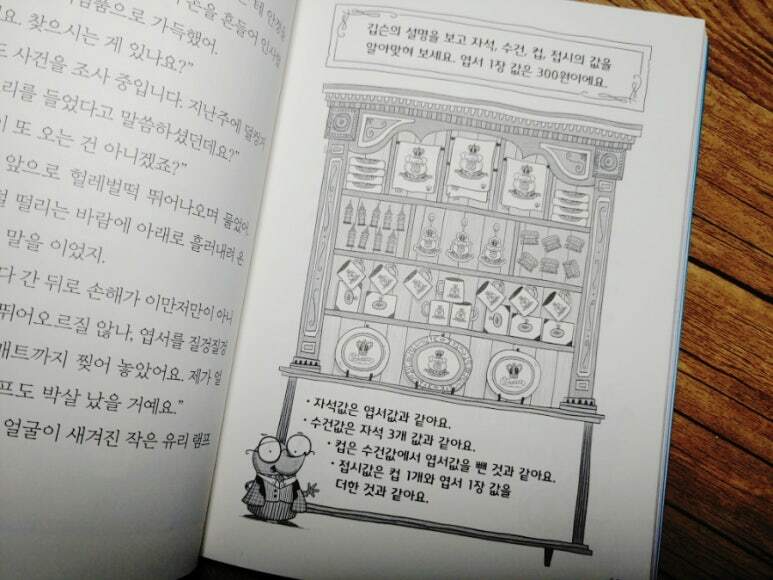 가득했어.
흔들어
찾으시는 게 있나요?"
사건을 조사 중입니다. 지난주에
리를 들었다고 말씀하셨던데요?"
또 오는 건 아니겠죠?"
앞으로 헐레벌떡 뛰어나오며 물었어.
떨리는 바람에 아래로 흘러내려 온
말을 이었지.
다 간 뒤로 손해가 이만저만이 아니
뛰어오르질 않나, 엽서를 질겅질겅
매트까지 찢어 놓았어요. 제가 얼
프도 박살 났을 거예요."
얼굴이 새겨진 작은 유리 램프
깁슨의 설명을 보고 자석, 수건, 컵, 접시의 값을
알아맞혀 보세요. 엽서 1장 값은 300원이에요.
· 자석값은 엽서값과 같아요.
· 수건값은 자석 3개 값과 같아요.
· 컵은 수건값에서 엽서값을 뺀 것과 같아요.
· 접시값은 컵 1개와 엽서 1장 값을
더한 것과 같아요.